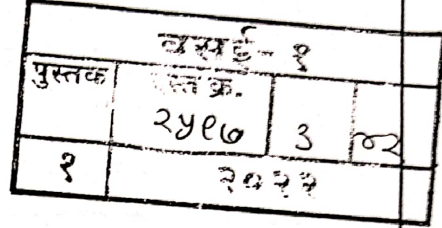 वसई-१
पुस्तक दस्त क्र.
२५९७ ३ ४२
१ २०२२